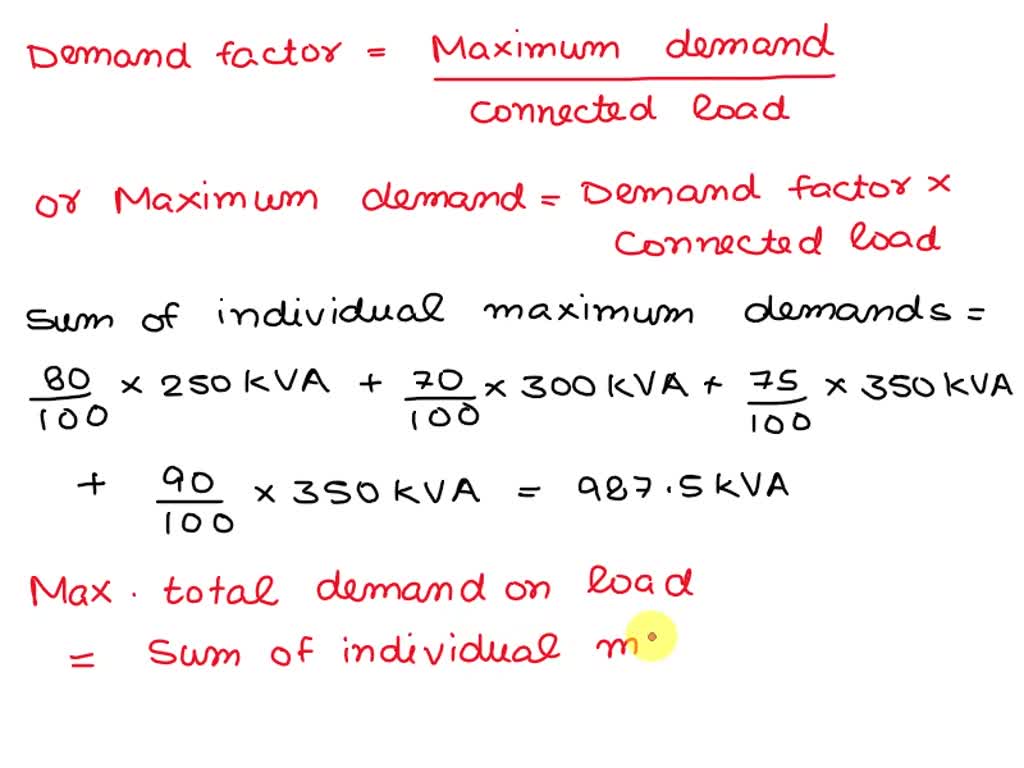 Demand factor = Maximum demand / Connected load
or Maximum demand = Demand factor ×
Connected load
Sum of individual maximum demands =
80/100 × 250 kVA + 70/100 × 300 kVA + 75/100 × 350 kVA
+ 90/100 × 350 kVA = 987.5 kVA
Max. total demand on load
= Sum of individual m